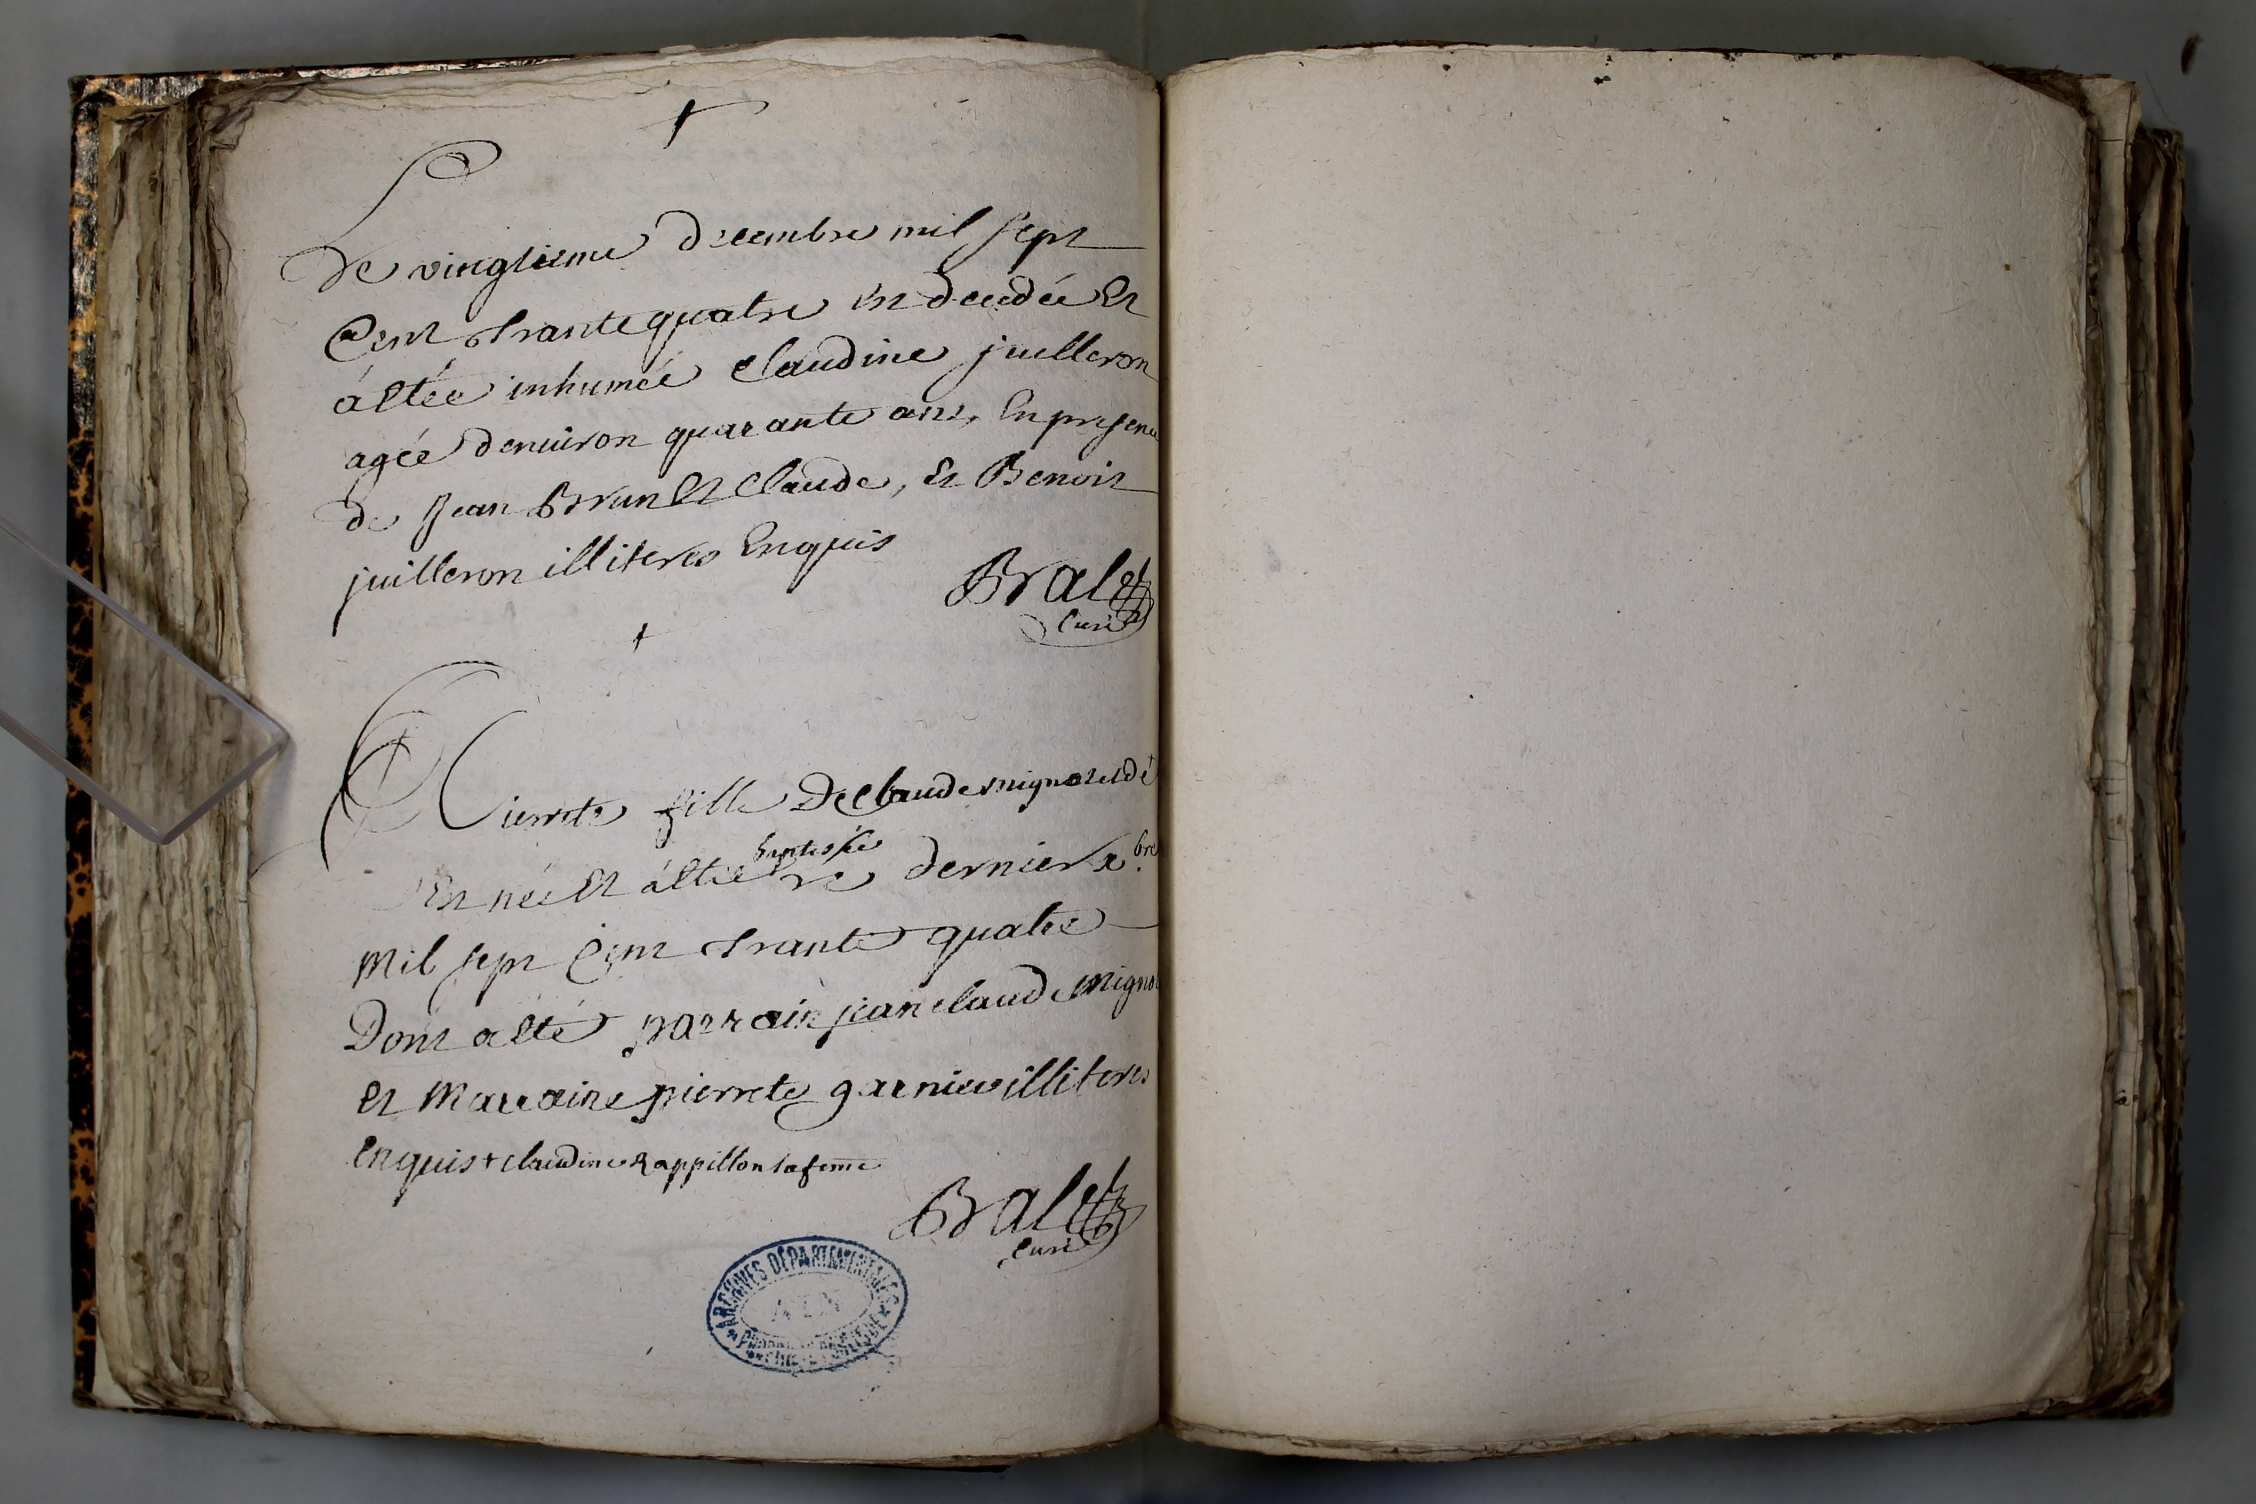 +
Le vingtieme decembre mil sept
Cent trante quatre est decedée Et
á étée inhumée Claudine juilleron
agée denuiron quarante ans, En presence
de Jean Brun Et Claude, Et Benoit
juilleron illiteres Enquis
Bralet
Curé
+
Pierrete fille De Claude mignot et dé+
Est née Et á étée baptisée le dernier xbre
Mil sept Cent trante quatre
Dont a été parrain jean claude mignot
et Maraine pierrete garnier illiteres
Enquis + claudine Rappillon sa feme
Bralet
Curé
ARCHIVES DÉPARTEMENTALES
AIN